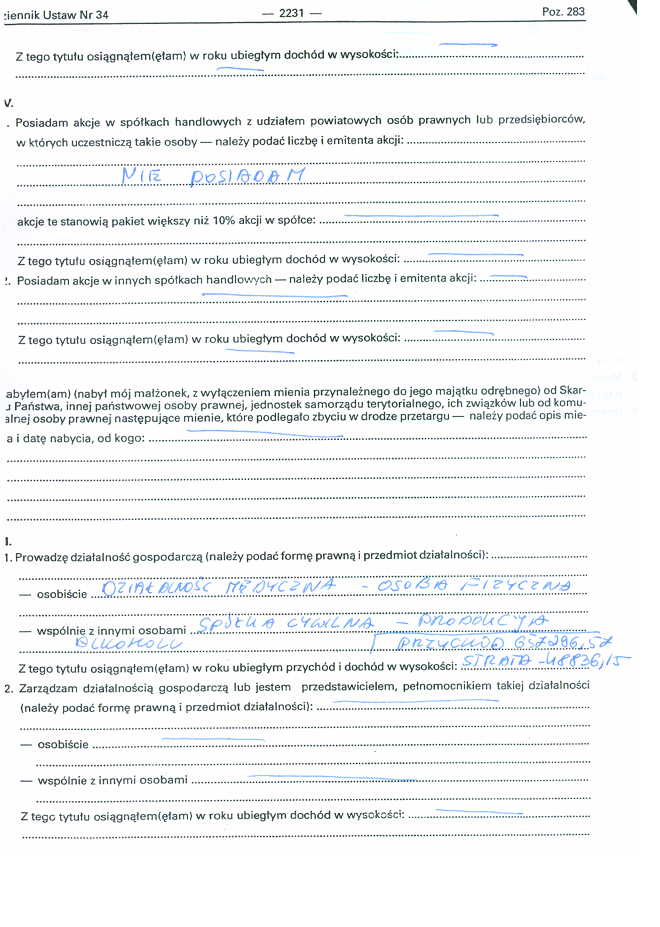 ziennik Ustaw Nr 34 — 2231 — Poz. 283
Z tego tytułu osiągnąłem(ęłam) w roku ubiegłym dochód w wysokości:
V.
. Posiadam akcje w spółkach handlowych z udziałem powiatowych osób prawnych lub przedsiębiorców,
w których uczestniczą takie osoby — należy podać liczbę i emitenta akcji:
NIE POSIADAM
akcje te stanowią pakiet większy niż 10% akcji w spółce:
Z tego tytułu osiągnąłem(ęłam) w roku ubiegłym dochód w wysokości:
2. Posiadam akcje w innych spółkach handlowych — należy podać liczbę i emitenta akcji:
Z tego tytułu osiągnąłem(ęłam) w roku ubiegłym dochód w wysokości:
abyłem(am) (nabył mój małżonek, z wyłączeniem mienia przynależnego do jego majątku odrębnego) od Skar-
u Państwa, innej państwowej osoby prawnej, jednostek samorządu terytorialnego, ich związków lub od komu-
alnej osoby prawnej następujące mienie, które podlegało zbyciu w drodze przetargu — należy podać opis mie-
a i datę nabycia, od kogo:
I.
1. Prowadzę działalność gospodarczą (należy podać formę prawną i przedmiot działalności):
— osobiście DZIAŁALNOŚĆ MEDYCZNA - OSOBA FIZYCZNA
— wspólnie z innymi osobami SPÓŁKA CYWILNA - PRODUKCJA
ALKOHOLU PRZYCHÓD 657296,57
Z tego tytułu osiągnąłem(ęłam) w roku ubiegłym przychód i dochód w wysokości: STRATA -48836,15
2. Zarządzam działalnością gospodarczą lub jestem przedstawicielem, pełnomocnikiem takiej działalności
(należy podać formę prawną i przedmiot działalności):
— osobiście
— wspólnie z innymi osobami
Z tego tytułu osiągnąłem(ęłam) w roku ubiegłym dochód w wysokości: